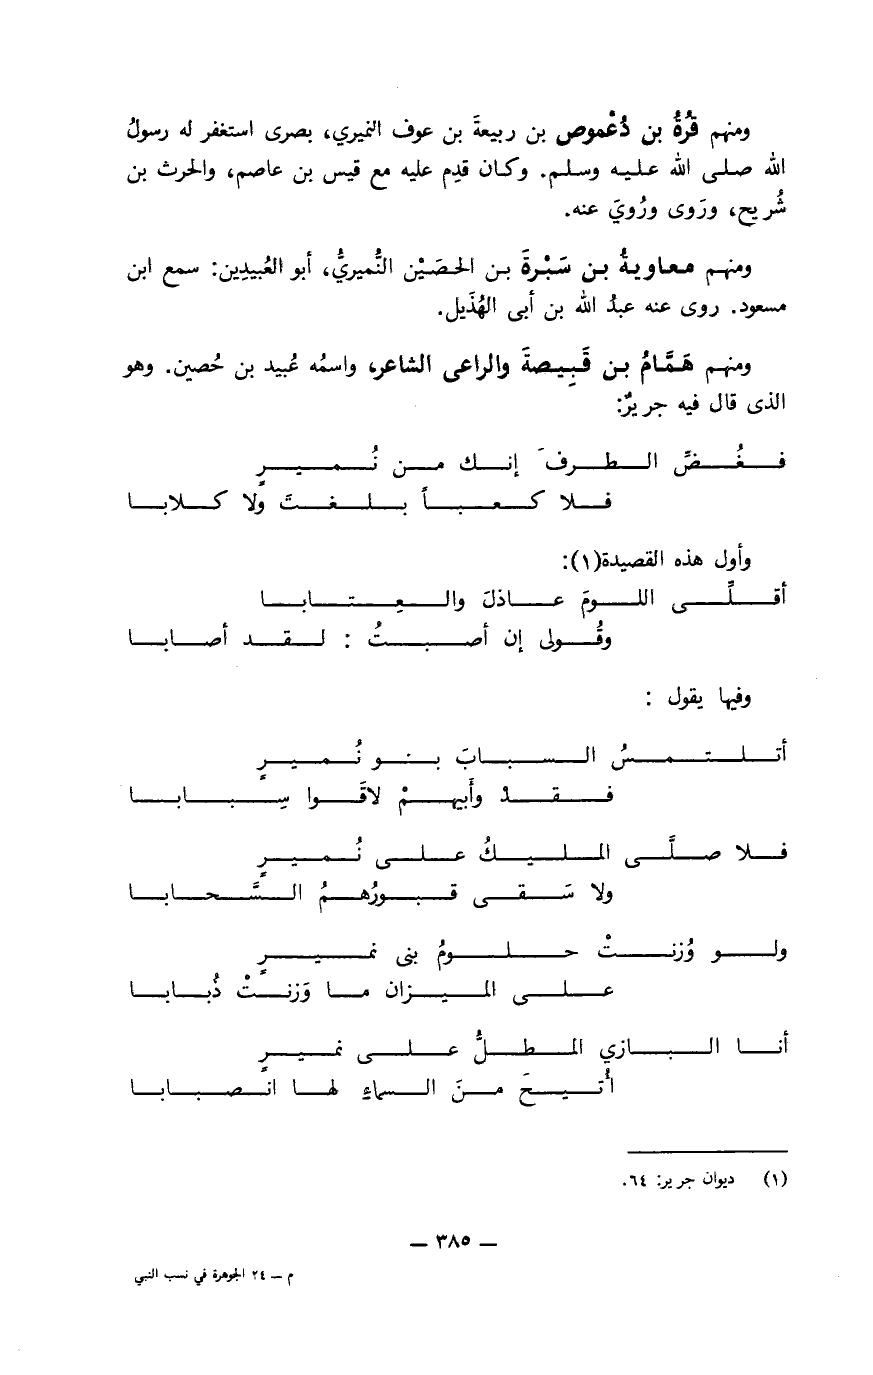 ومنهم قُرَّةُ بن دُعْموص بن ربيعةَ بن عوف النميري، بصرى استغفر له رسولُ
الله صلى الله عليه وسلم. وكان قدِم عليه مع قيس بن عاصم، والحرث بن
شُريح، ورَوى ورُويَ عنه.
ومنهم معاويةُ بن سَبْرةَ بن الحصَيْن النُّميريُّ، أبو العُبيدِين: سمع ابن
مسعود. روى عنه عبدُ الله بن أبى الهُذَيل.
ومنهم هَمَّامُ بن قَبِيصةَ والراعى الشاعر، واسمُه عُبيد بن حُصين. وهو
الذى قال فيه جريرٌ:
فغُضِّ الطرفَ إنك من نُميرٍ
فلا كعباً بلغتَ ولا كلابا
وأول هذه القصيدة(١):
أقلِّى اللومَ عاذلَ والعِتابا
وقُولى إن أصبتُ : لقد أصابا
وفيها يقول :
أتلتمسُ السبابَ بنو نُميرٍ
فقدْ وأَبيهمْ لاقَوا سِبابا
فلا صلَّى المليكُ على نُميرٍ
ولا سَقى قبورُهمُ السَّحابا
ولو وُزنتْ حلومُ بنى نميرٍ
على الميزان ما وَزنتْ ذُبابا
أنا البازي المطلُّ على نميرٍ
أُتيحَ منَ السماءِ لها انصبابا
(١) ديوان جرير: ٦٤.
— ٣٨٥ —
م — ٢٤ الجوهرة في نسب النبي